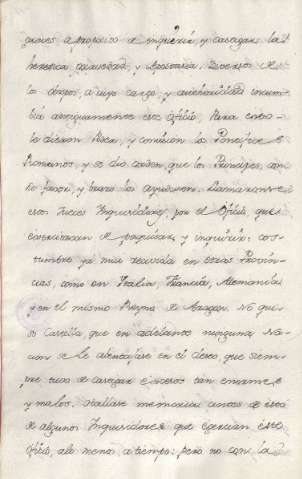 graves a proposito de inquirir, y castigar la
heretica pravedad, y Apostasia. Diversos de
los obispos, a cuyo cargo, y autoridad incum
bia antiguamente este oficio. Para esto
le dieron Poder, y comision los Pontifices
Romanos, y se dio orden, que los Principes, con
su favor, y brazo los ayudasen. Llamaronse
estos Jueces Inquisidores, por el Oficio, que
exercitaban de pesquisar, y inquirir: cos-
tumbre ya muy recivida en otras Provin-
cias, como en Italia, Francia, Alemania
y en el mismo Reyno de Aragon. No qui-
so Castilla, que en adelante ninguna Na-
cion se le aventajase en el deseo, que siem-
pre tuvo de castigar excesos tan enormes
y malos. Hallase memoria antes de esto
de algunos Inquisidores que exercian este
Oficio, alo menos a tiempos, pero no con la